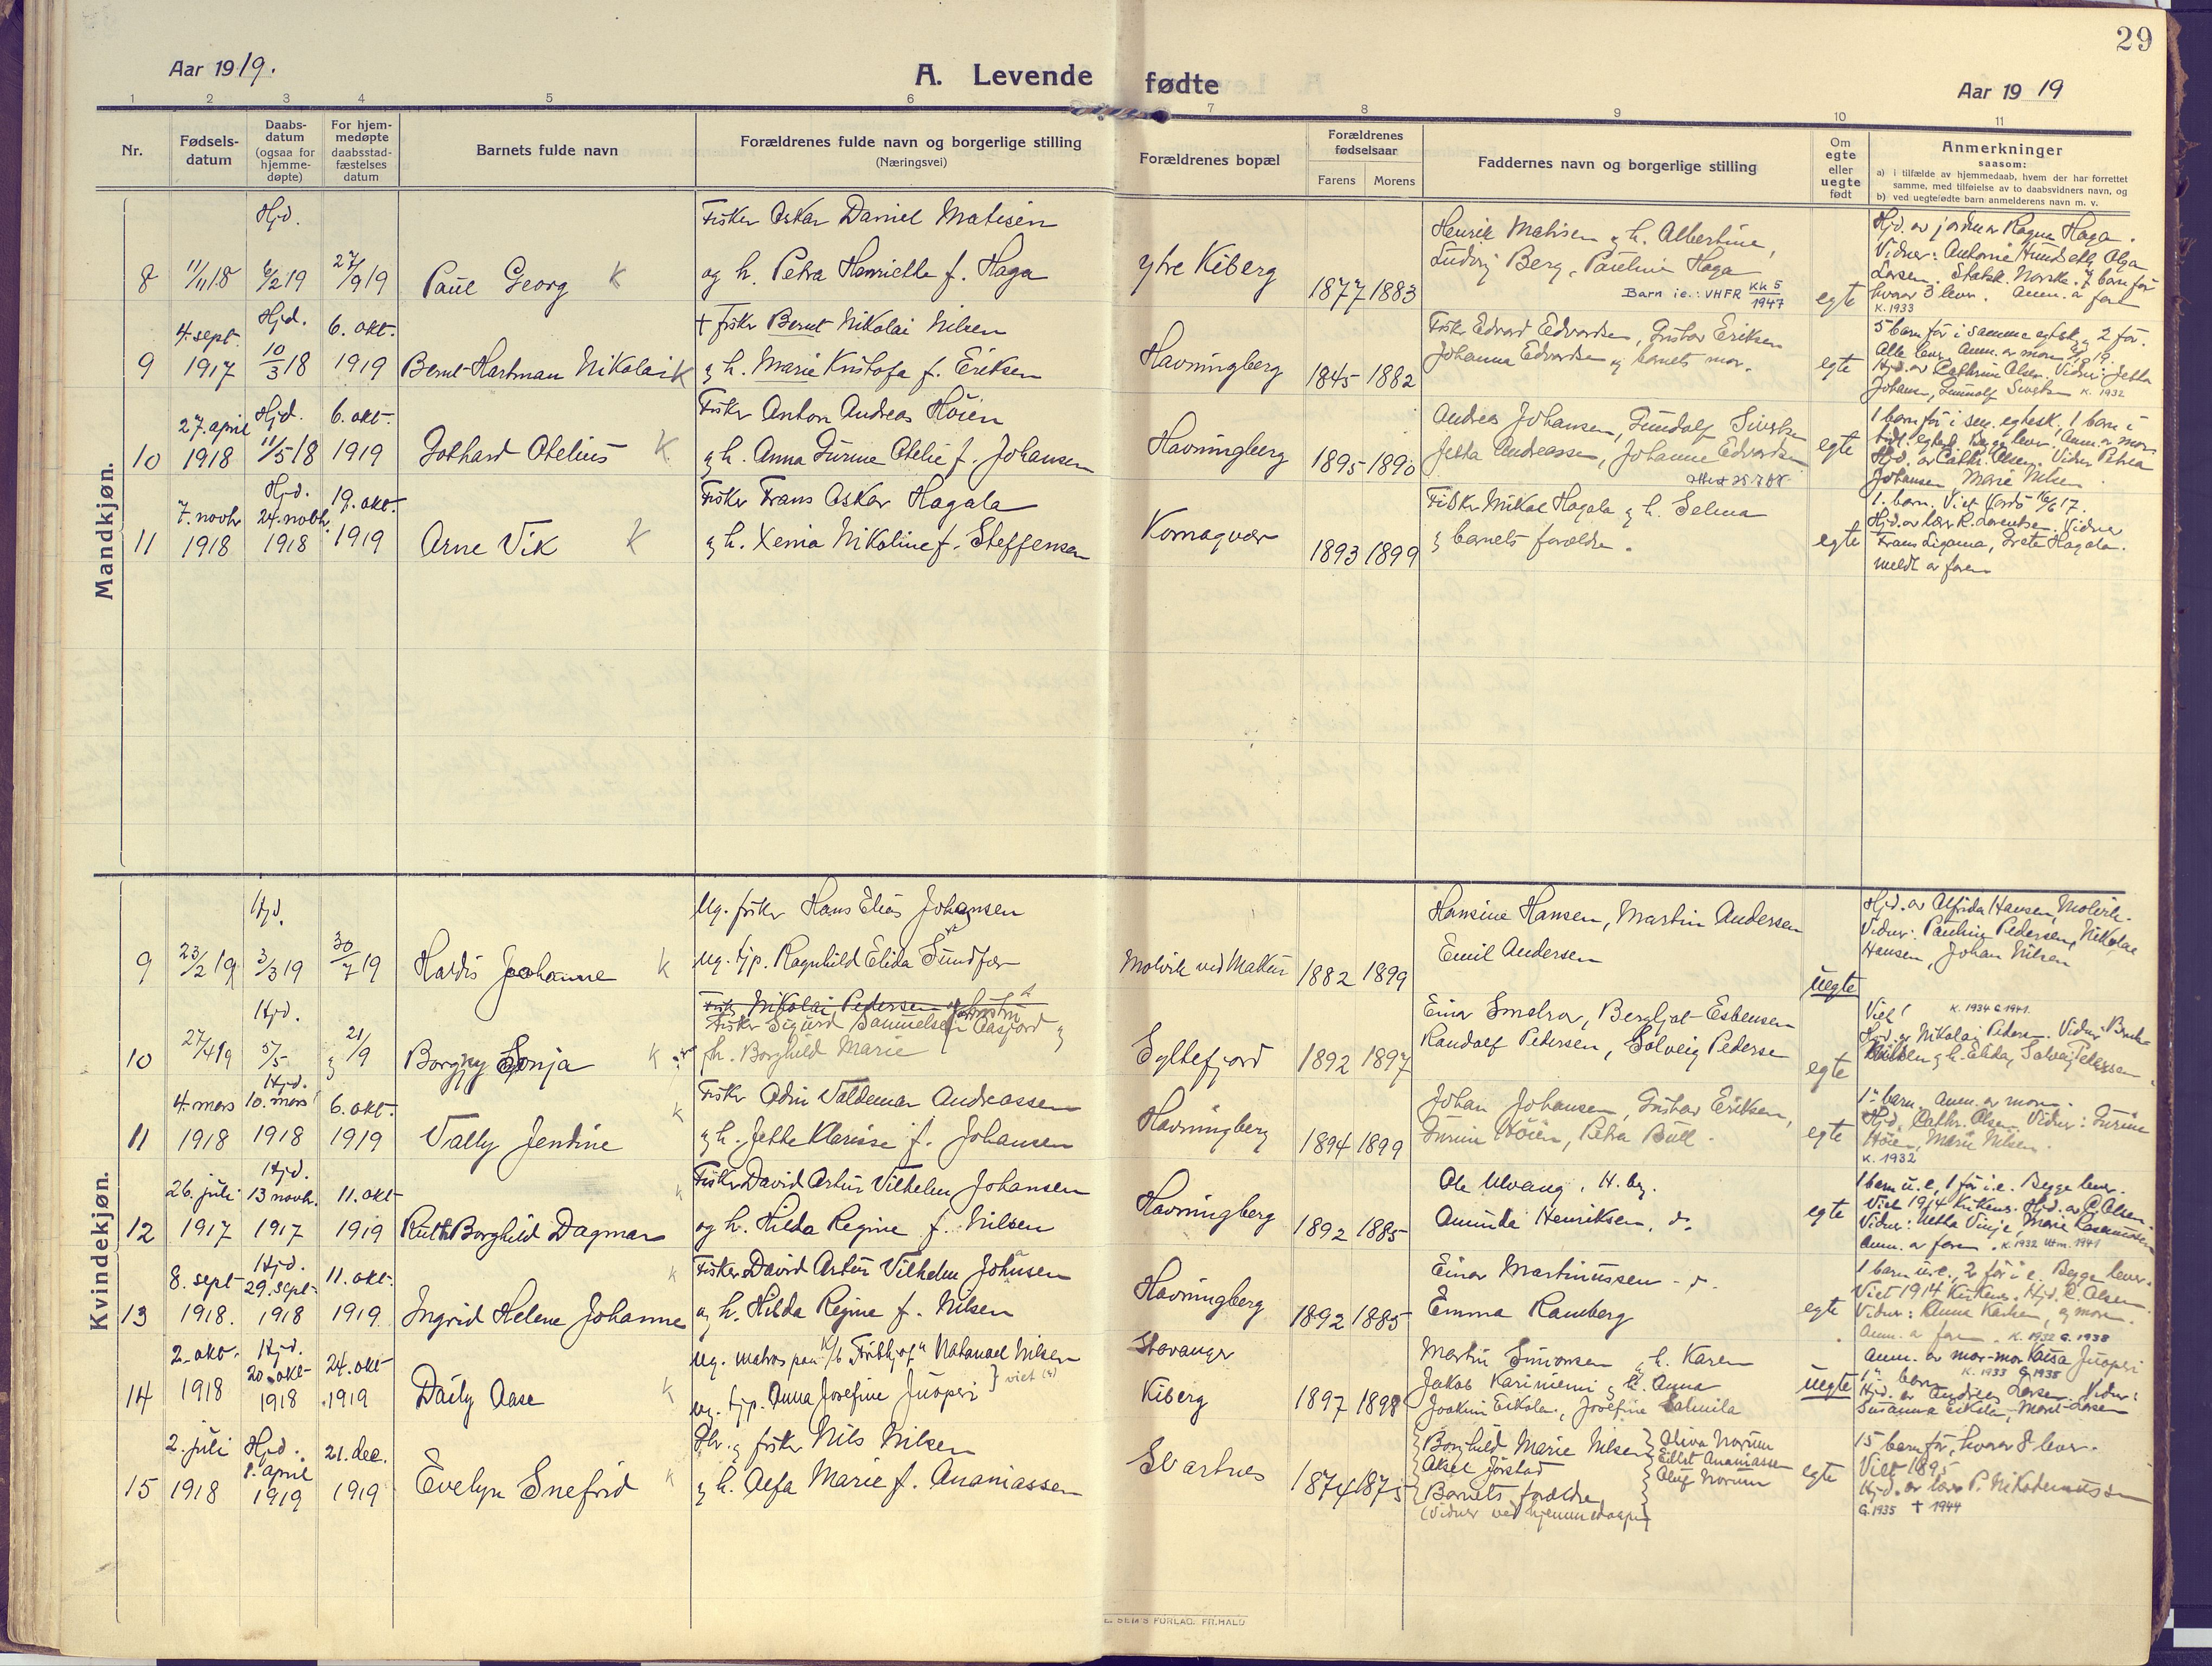 29
Aar 1919.
A. Levende fødte
Aar 1919
1 2 3 4 5 6 7 8 9 10 11
Nr.
Fødsels-
datum
Daabs-
datum
(ogsaa for
hjemme-
døpte)
For hjem-
medøpte
daabsstad-
fæstelses
datum
Barnets fulde navn
Forældrenes fulde navn og borgerlige stilling
(Næringsvei)
Forældrenes bopæl
Forældrenes
fødselsaar
Farens Morens
Faddernes navn og borgerlige stilling
Om
egte
eller
uegte
født
Anmerkninger
saasom:
a) i tilfælde av hjemmedaab, hvem der har forrettet
samme, med tilføielse av to daabsvidners navn, og
b) ved uegtefødte barn anmelderens navn m. v.
Mandkjøn.
8
11/11 18
Hjd.
6/2 19
27/9 19
Paul Georg K
Fisker Oskar Daniel Matisen
og h. Petra Henriette f. Haga
Ytre Kiberg
1877 1883
Henrik Mathisen og h. Albertine,
Ludvig Berg, Pauline Haga
Barn i e.: VHFR KK 5
1947
egte
Hjd. av jordmor Ragna Haga.
Vidner: Antonie Hundseth, Olga
Larsen. Statsb. Norske. 7 barn før
hvorav 3 lever. Anm. a far
K. 1933
9
4. sept.
1917
Hjd.
10/3 18
6. okt.
1919
Bernt Hartman Nikolai K
† fisker Bernt Nikolai Nilsen
og h. Marie Kristofa f. Eriksen
Havningberg
1845 1882
Fisker Edvard Edvardsen, Gustav Eriksen
Johanna Edvardsen og barnets mor.
egte
5 barn før i samme egtesk., 2 før.
Alle lever. Anm. av mor
Hjd. av Cathrine Olsen. Vidner: Jetta
Johansen, Gundolf Sivertsen K. 1932
10
27. april
1918
Hjd.
11/5 18
6. okt.
1919
Gothard Otelius K
Fisker Anton Andreas Höien
og h. Anna Gurine Otelie f. Johansen
Havningberg
1895 1890
Andreas Johansen, Gundolf Sivertsen
Jetta Andreassen, Johanne Edvardsen
egte
1 barn før i sm. egtesk. 1 barn i
tidl. egtesk. Begge lever. Anm. av mor
Hjd. av Cathr. Olsen. Vidner Petrea
Johansen Marie Nilsen.
11
7. novbr
1918
Hjd.
24. novbr.
1918
19. okt.
1919
Arne Vik K
Fisker Frans Oskar Hagala
og h. Xenia Nikoline f. Steffensen
Komagvær
1893 1899
Fisker Mikal Hagala og h. Selma
og barnets forældre.
egte
1. barn. Viet Vardö 16/6 17.
Hjd. av lærer R. Lorentsen. Vidner
Frans Ligama, Grete Hagala.
meldt av faren
Kvindekjøn.
9
23/2 19
Hjd.
3/3 19
30/7 19
Hardis Johanne K
Ug. fisker Hans Elias Johansen
ug. tjp. Ragnhild Elida Sundfær
Molvik ved Makur
1882 1899
Hansine Hansen, Martin Andersen
Emil Andersen
uegte
Hjd. av Alfrida Hansen, Molvik.
Vidner: Pauline Pedersen, Nikolai
Hansen, Johan Nilsen
10
27/4 19
Hjd.
5/5
og 21/9
Borgny Sonja K
Fisker Nikolai Pedersen og hustru
Fisker Sigurd Samuelsen Aasjord og
h. Borghild Marie
Syltefjord
1892 1897
Einar Smelror, Bergljot Esbensen
Randolf Pedersen, Solveig Pedersen
egte
Viet! K. 1934 G. 1941.
Hjd. av Nikolai Pedersen. Vidner
Nilsen og h. Elida, Solveig Pedersen
11
4. mars
1918
Hjd.
10. mars
1918
6. okt.
1919
Vally Jendine K
Fisker Odin Valdemar Andreassen
og h. Jette Klarisse f. Johansen
Havningberg
1894 1899
Johan Johansen, Gustav Eriksen,
Gurine Höien, Petra Bull.
egte
1ste barn. Anm. av moren.
Hjd. Cathr. Olsen. Vidner: Gurine
Höien, Marie Nilsen.
K. 1932
12
26. juli
1917
Hjd.
13 novbr.
1917
11. okt
1919
Ruth Borghild Dagmar K
Fisker David Artur Vilhelm Johansen
og h. Hilda Regine f. Nilsen
Havningberg
1892 1885
Ole Ulvang, H.berg.
Aminda Henriksen, do
egte
1 barn u. e, 1 før i e. Begge lever.
Viet 1914 Kirkens. Hjd. av C. Olsen.
Vidner: Netta Vinje, Marie Rasmussen
Anm. a faren. K. 1932 Utm. 1941
13
8. sept
1918.
Hjd.
29. sept
1918
11. okt.
1919
Ingrid Helene Johanne K
Fisker David Artur Vilhelm Johnsen
og h. Hilda Regine f. Nilsen
Havningberg
1892 1885
Einar Martinussen
Emma Ramberg
egte
1 barn u. e., 2 før i e. Begge lever.
Viet 1914 Kirkens. Hjd. C. Olsen.
Vidner: Anna Karlsen, og mor.
Anm. a far. K. 1932 G. 1938
14
2. okt.
1918
Hjd.
20. okt
1918
24. okt
1919
Daily Aase K
Ug. matros paa M/b "Fridthjof" Natanael Nilsen
ug. tjp. Anna Josefine Juoperi } viet
Stavanger
Kiberg
1897 1898
Martin Simonsen og h. Karen
Jakob Kariniemi og h. Anna
Joakim Eikola, Josefine Salmila
uegte
Anm. av mor-mor Kaisa Juoperi
1ste barn K. 1933 G. 1935
Hjd. av Andrea Larsen. Vidner:
Susanna Eikola, Marit Larsen
15
2. juli
1918
Hjd.
8. april
1919
21. dec.
1919
Evelyn Snefrid K
Gbr. og fisker Nils Nilsen
og h. Alfa Marie f. Ananiassen
Svartnes
1874 1875
Borghild Marie Nilsen
Aksel Jörstad
Barnets forældre
(Vidner ved hjemmedaapen)
Oliva Norum
Eilert Ananiassen
Oluf Norum
egte
15 barn før, hvorav 8 lever.
Viet 1895
Hjd. av lærer P. Nikodemussen
G. 1935 † 1944
SEM'S FORLAG, FR.HALD